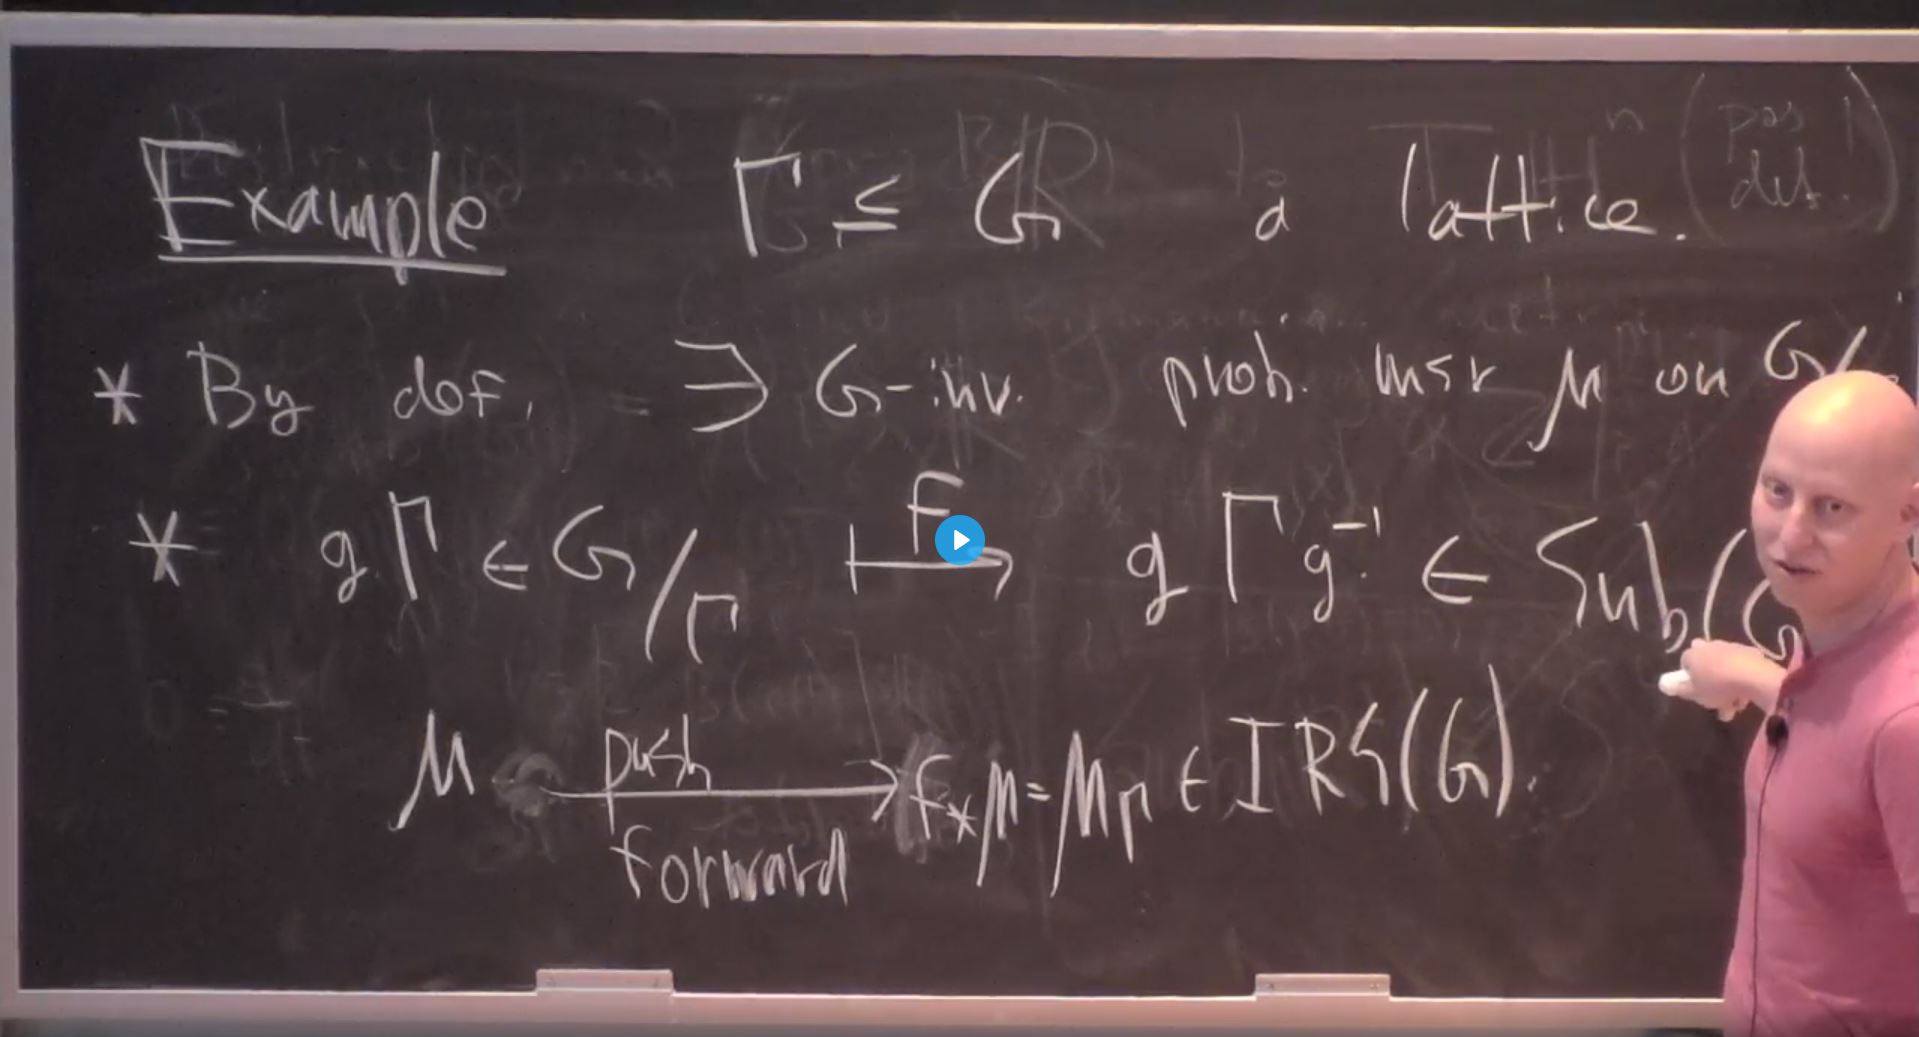 Example Γ ≤ G a lattice.
* By def. ∃ G-inv. prob. msr μ on G/
* gΓ ∈ G/Γ ⟼ F gΓg⁻¹ ∈ Sub(G
μ push forward → F⁎μ = μ_Γ ∈ IRS(G).